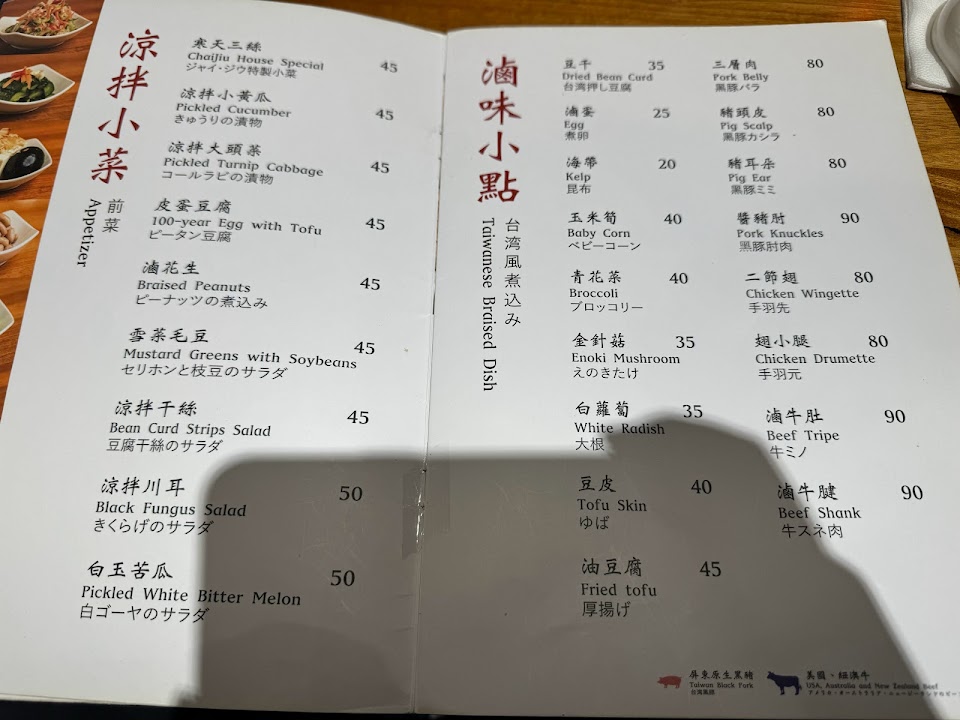 涼拌小菜
前菜
Appetizer
寒天三絲
ChaiJiu House Special 45
ジャイ・ジウ特製小菜
涼拌小黃瓜
Pickled Cucumber 45
きゅうりの漬物
涼拌大頭菜
Pickled Turnip Cabbage 45
コールラビの漬物
皮蛋豆腐
100-year Egg with Tofu 45
ピータン豆腐
滷花生
Braised Peanuts 45
ピーナッツの煮込み
雪菜毛豆
Mustard Greens with Soybeans 45
セリホンと枝豆のサラダ
涼拌干絲
Bean Curd Strips Salad 45
豆腐干絲のサラダ
涼拌川耳 50
Black Fungus Salad
きくらげのサラダ
白玉苦瓜 50
Pickled White Bitter Melon
白ゴーヤのサラダ
滷味小點
台湾風煮込み
Taiwanese Braised Dish
豆干 35
Dried Bean Curd
台湾押し豆腐
滷蛋 25
Egg
煮卵
海帶 20
Kelp
昆布
玉米筍 40
Baby Corn
ベビーコーン
青花菜 40
Broccoli
ブロッコリー
金針菇 35
Enoki Mushroom
えのきたけ
白蘿蔔 35
White Radish
大根
豆皮 40
Tofu Skin
ゆば
油豆腐 45
Fried tofu
厚揚げ
三層肉 80
Pork Belly
黒豚バラ
豬頭皮 80
Pig Scalp
黒豚カシラ
豬耳朵 80
Pig Ear
黒豚ミミ
醬豬肘 90
Pork Knuckles
黒豚肘肉
二節翅 80
Chicken Wingette
手羽先
翅小腿 80
Chicken Drumette
手羽元
滷牛肚 90
Beef Tripe
牛ミノ
滷牛腱 90
Beef Shank
牛スネ肉
屏東原生黑豬
Taiwan Black Pork
台湾黒豚
美國、紐澳牛
USA, Australia and New Zealand Beef
アメリカ・オーストラリア・ニュージーランドのビーフ